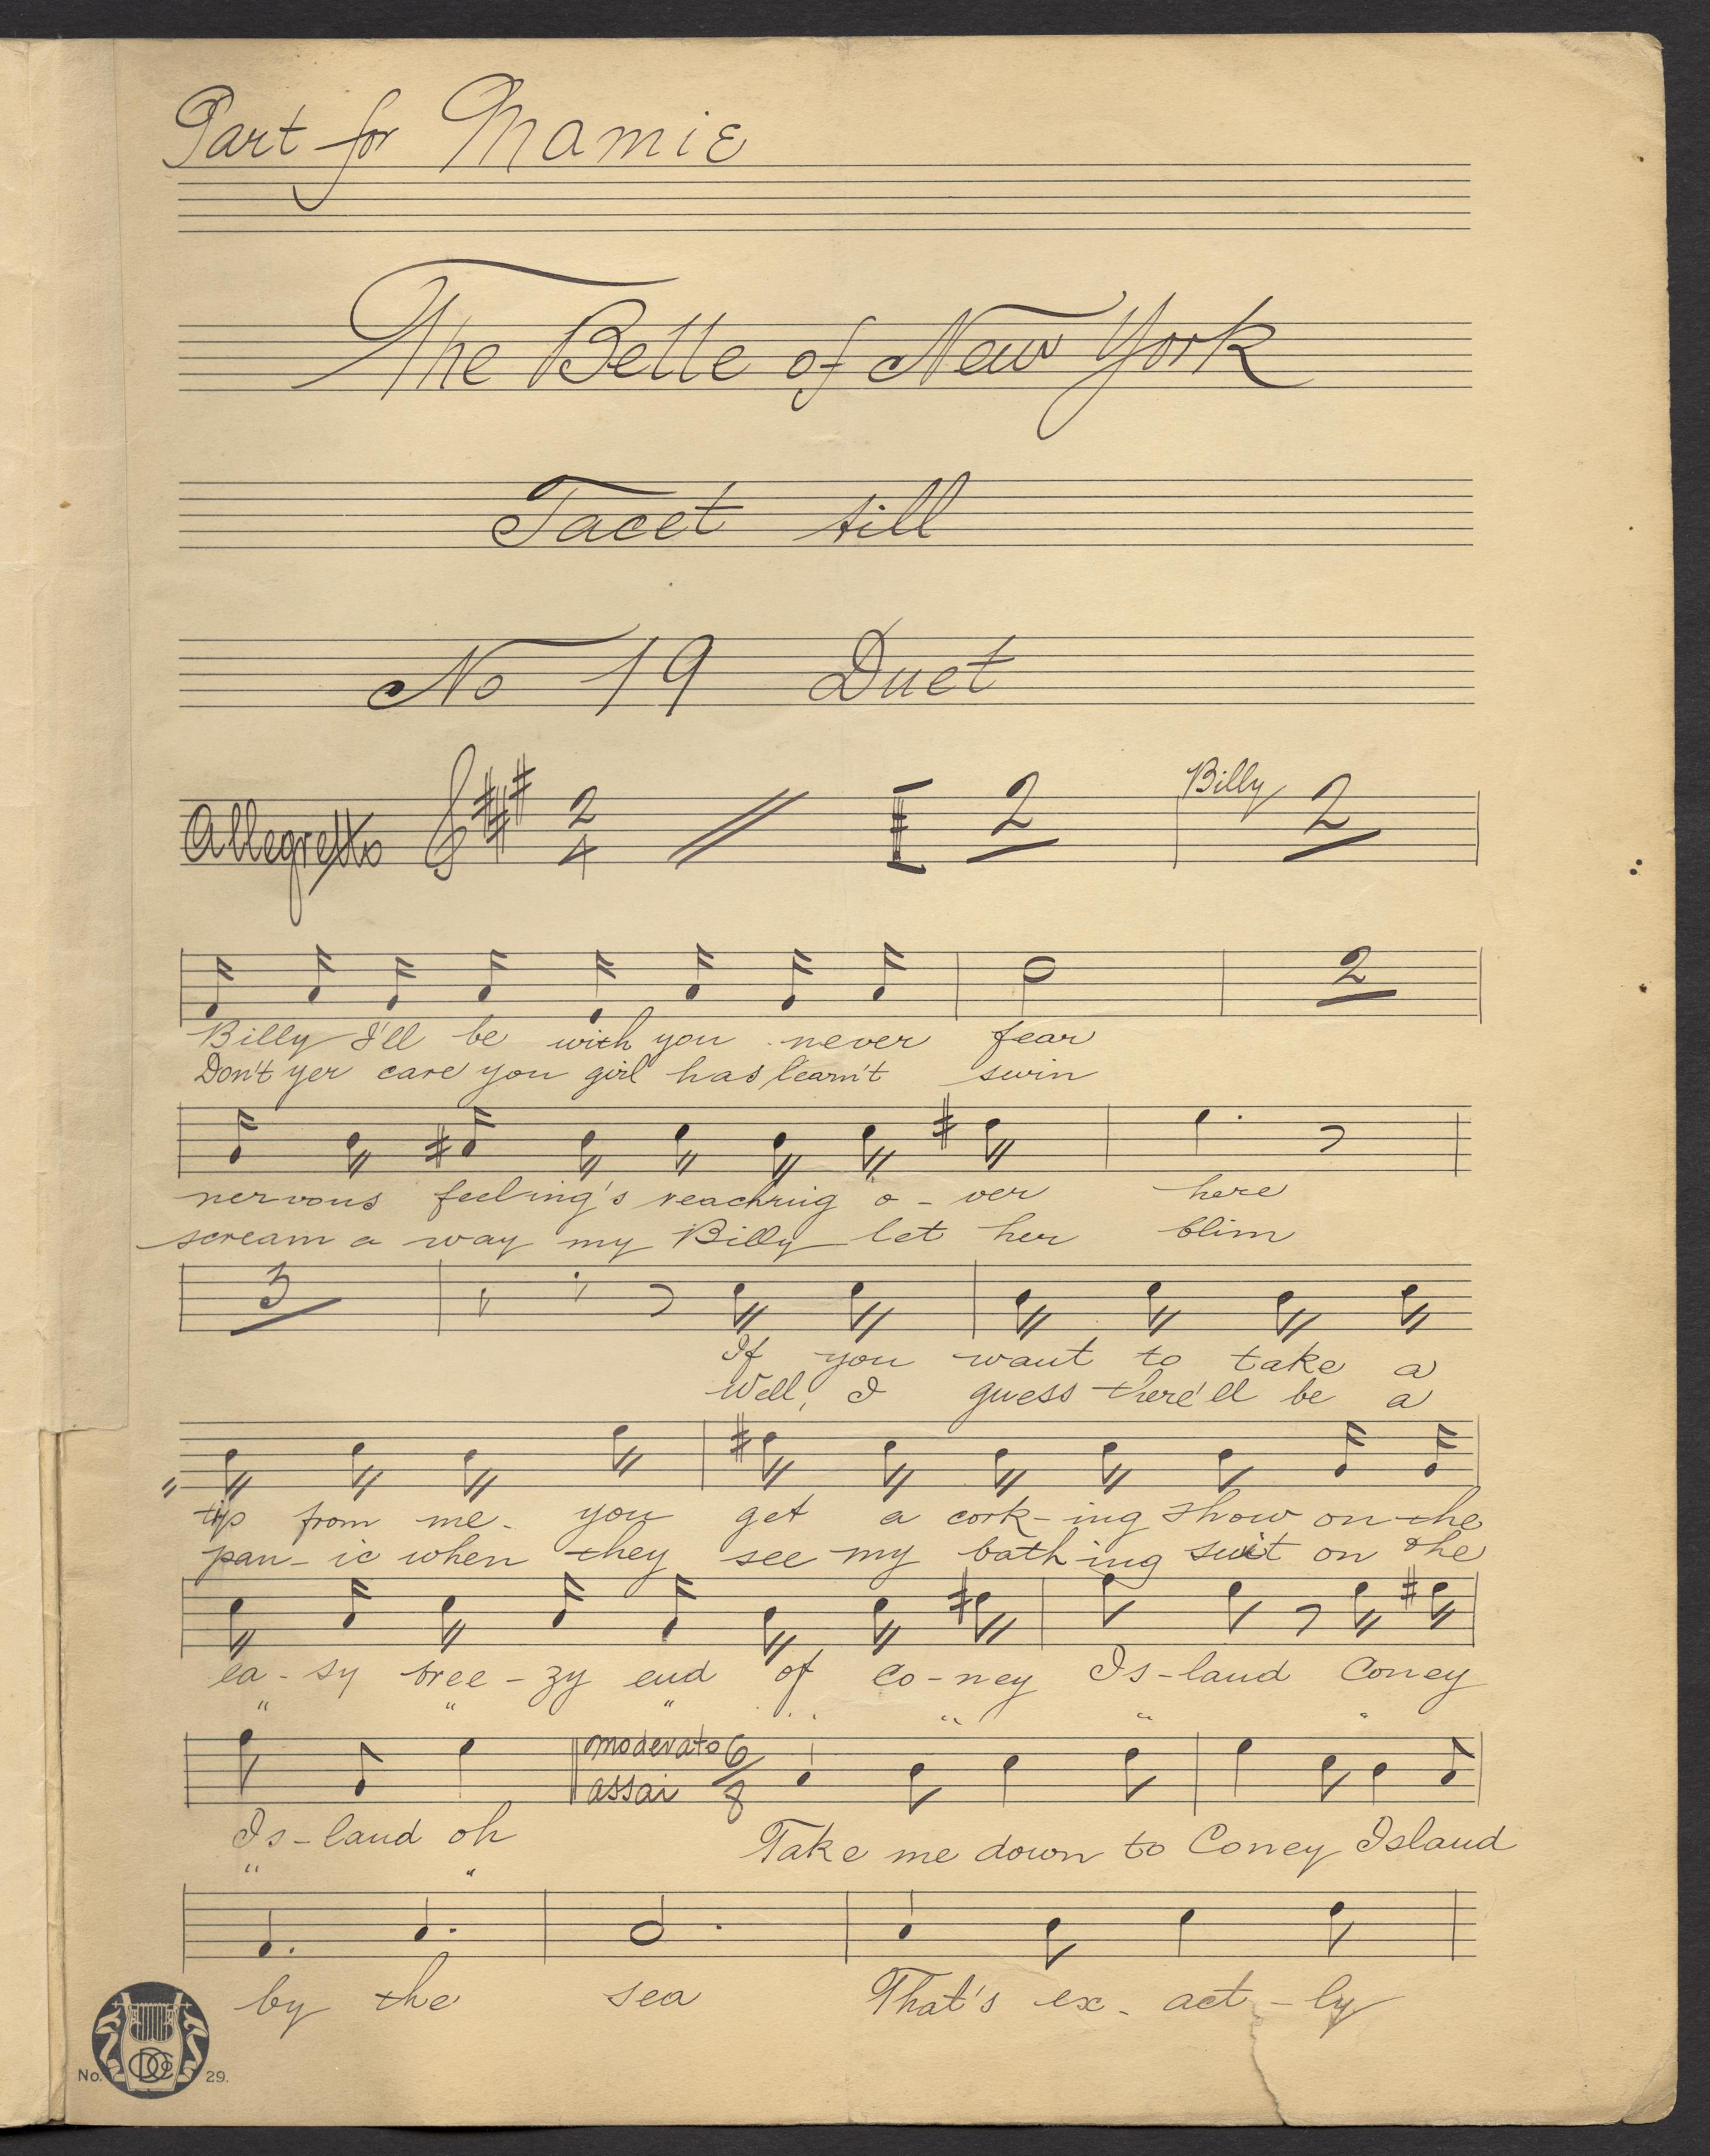 Part for Mamie
The Belle of New York
Tacet till
No 19 Duet
Allegretto 2/4 2 Billy 2
2
Billy I'll be with you never fear
Don't yer care you girl has learn't swin
nervous feeling's reaching o-ver here
scream a way my Billy let her blim
3
If you want to take a
Well, I guess there'll be a
tip from me- you get a cork-ing show on the
pan-ic when they see my bath ing suit on the
ea-sy bree-zy end of Co-ney Is-land Coney
" " " " " " "
moderato assai 6/8
Is-land oh Take me down to Coney Island
" "
by the sea That's ex-act-ly
No. 29.